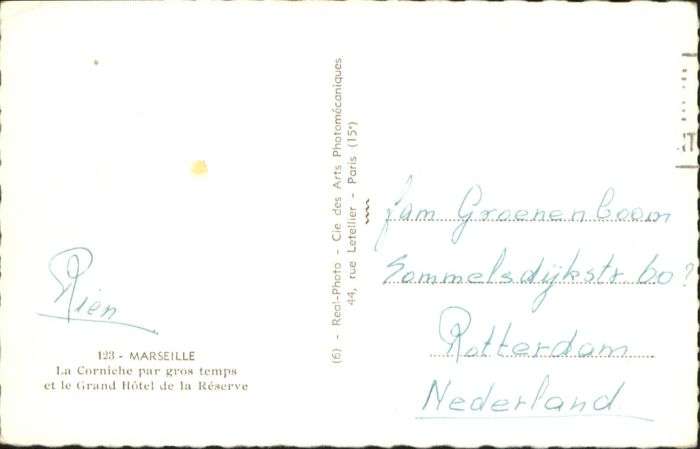 Rien
123 - MARSEILLE
La Corniche par gros temps
et le Grand Hôtel de la Réserve
(6) - Real-Photo - Cie des Arts Photomécaniques
44, rue Letellier - Paris (15e)
fam Groenenboom
Sommelsdijkstr. 60
Rotterdam
Nederland